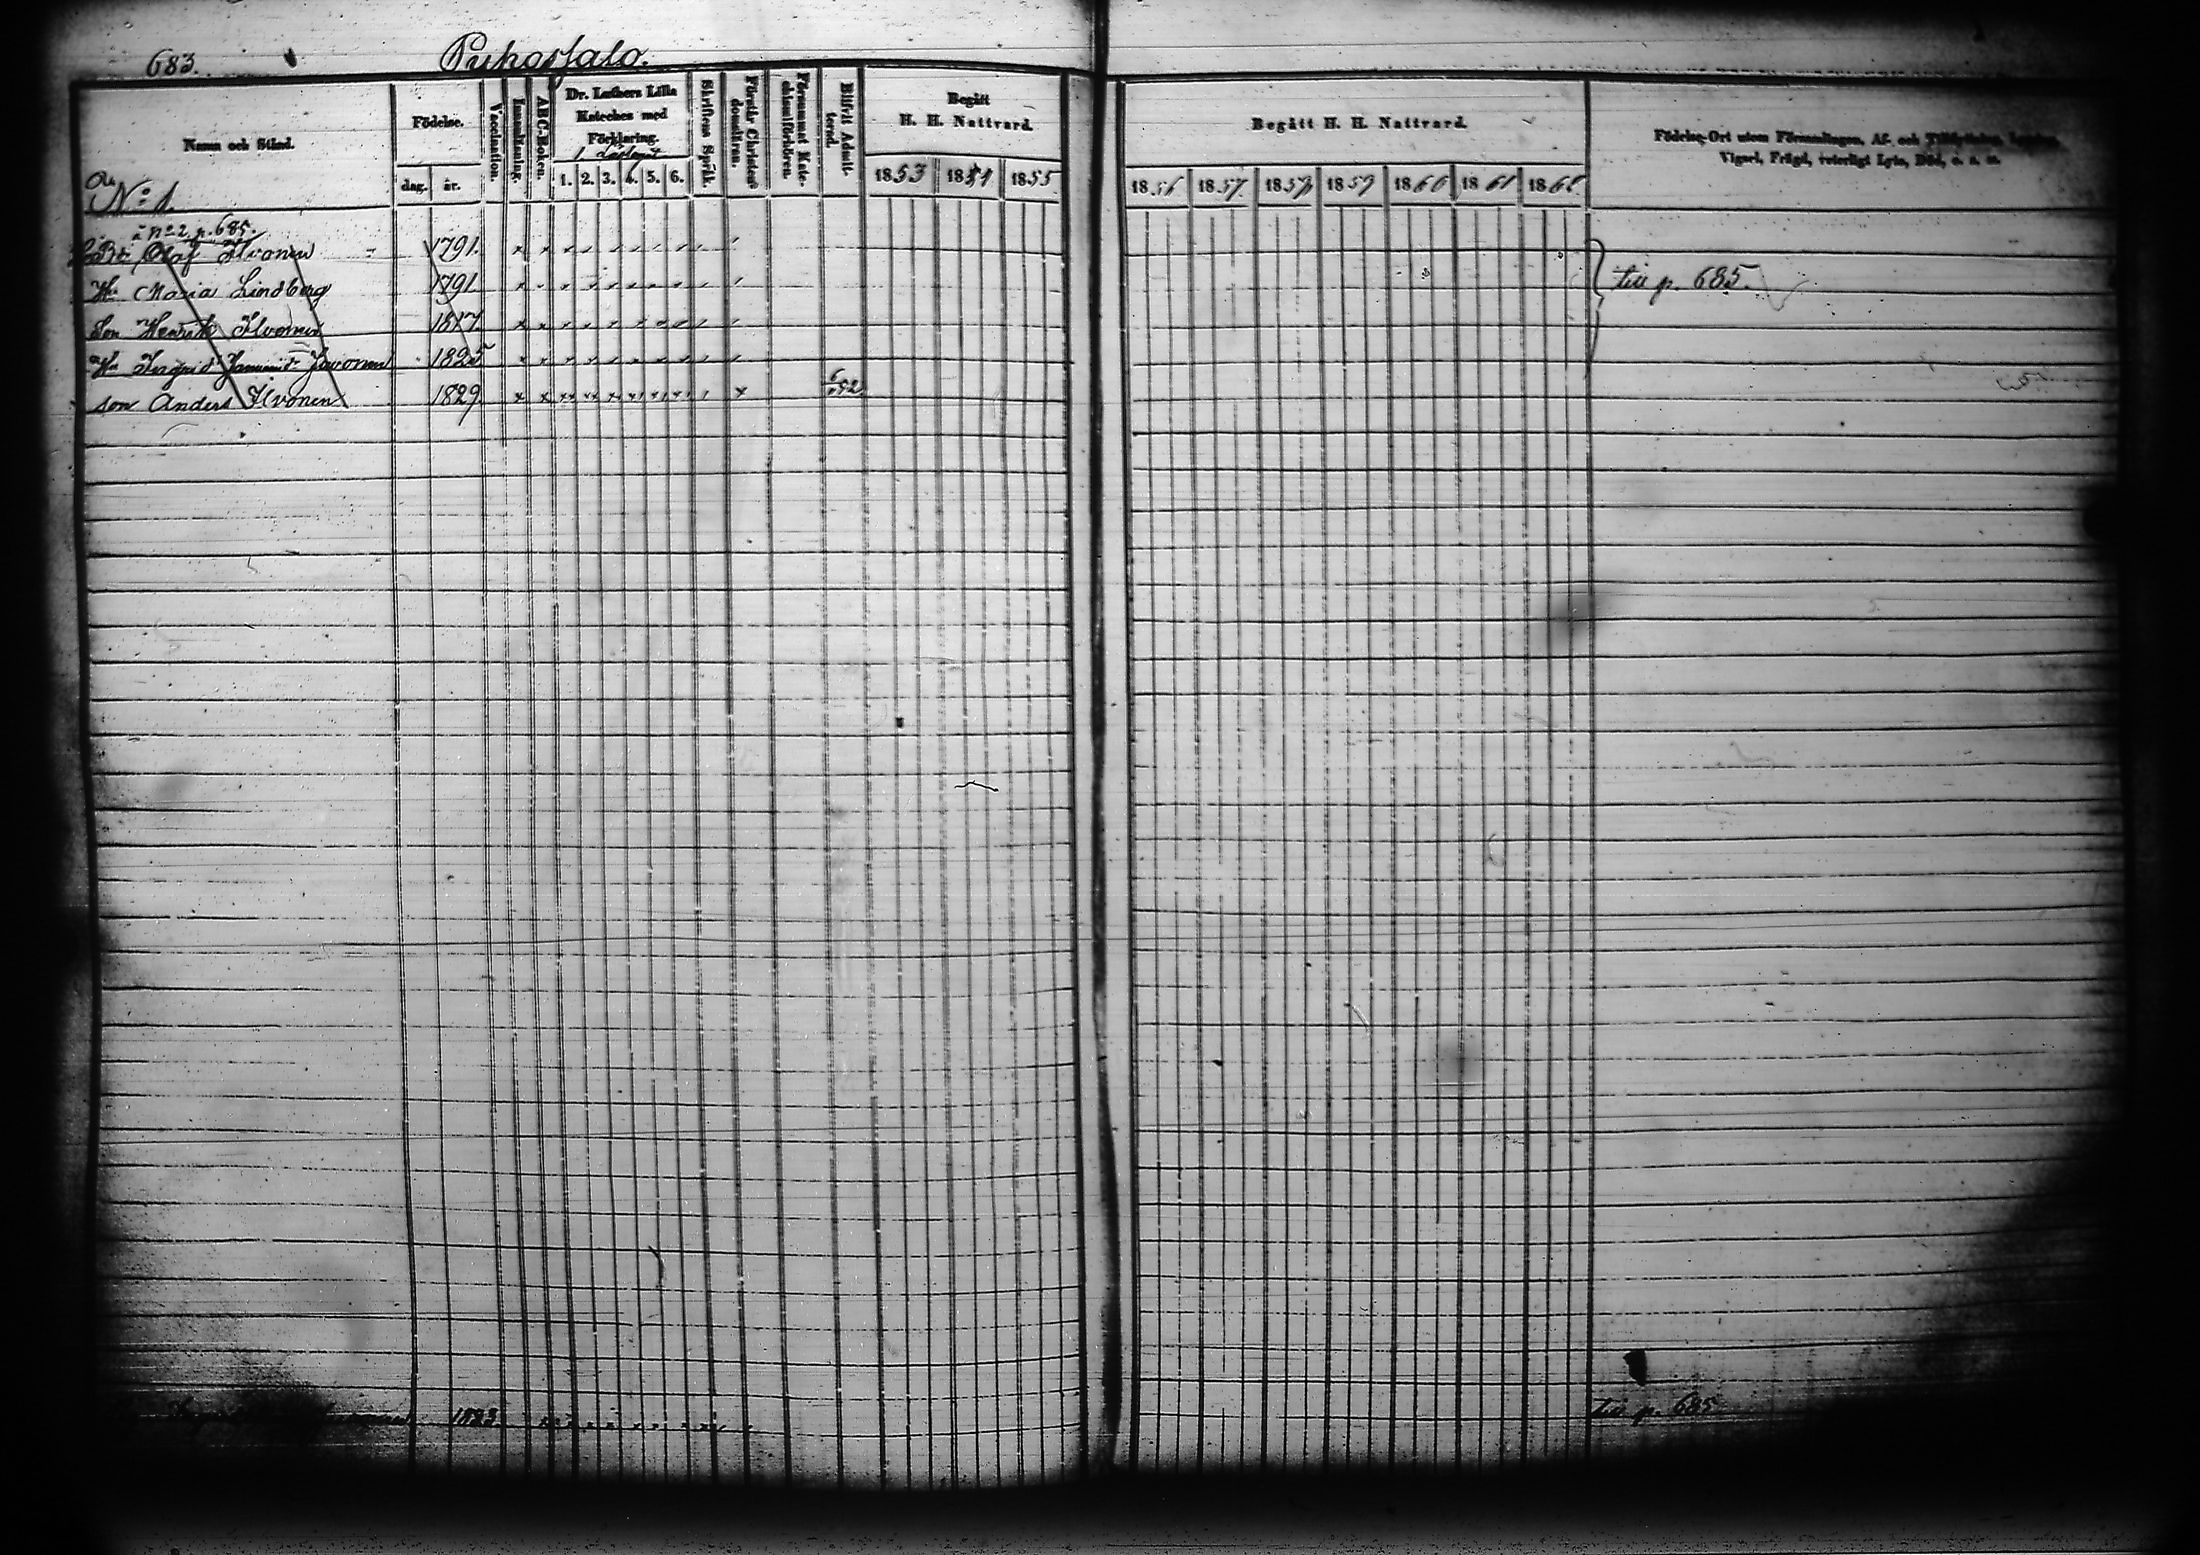 683. Puhossalo.
Namn och Stånd. Födelse. dag. år. Vaccination. Innanläsning. ABC-Boken. Dr. Luthers Lilla Kateches med Förklaring. 1. 2. 3. 4. 5. 6. Skriftens Språk. Förstår Christendomsläran. Försummat Katechismiförhören. Blifvit Admitterad. Begått H. H. Nattvard. 1853 1854 1855
Begått H. H. Nattvard. 1856 1857. 1858 1859 1860 1861 1862
Födelse-Ort utom Församlingen, Af- och
Vigsel, Frägd, veterligt Lyte, Död, o. s. v.
No: 1.
No 2 p. 685.
Olof Ilvonen 1791.
Hu Maria Lindberg 1791 till p. 685.
Son Henrik Ilvonen 1817.
Hu Ingrid 1825
Son Anders Ilvonen 1829.
1823 till p. 685